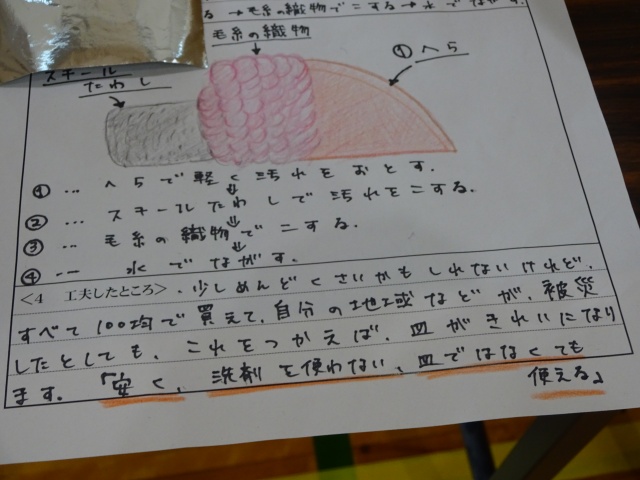 る→毛糸の織物でこする→水でながす.
毛糸の織物
①へら
スチール
たわし
① … へらで軽く汚れをおとす.
② … スチールたわしで汚れをこする.
③ … 毛糸の織物でこする.
④ … 水でながす.
<4 工夫したところ>・少しめんどくさいかもしれないけれど、
すべて100均で買えて、自分の地域などが、被災
したとしても、これをつかえば、皿がきれいになり
ます.「安く、洗剤を使わない、皿ではなくても
使える」